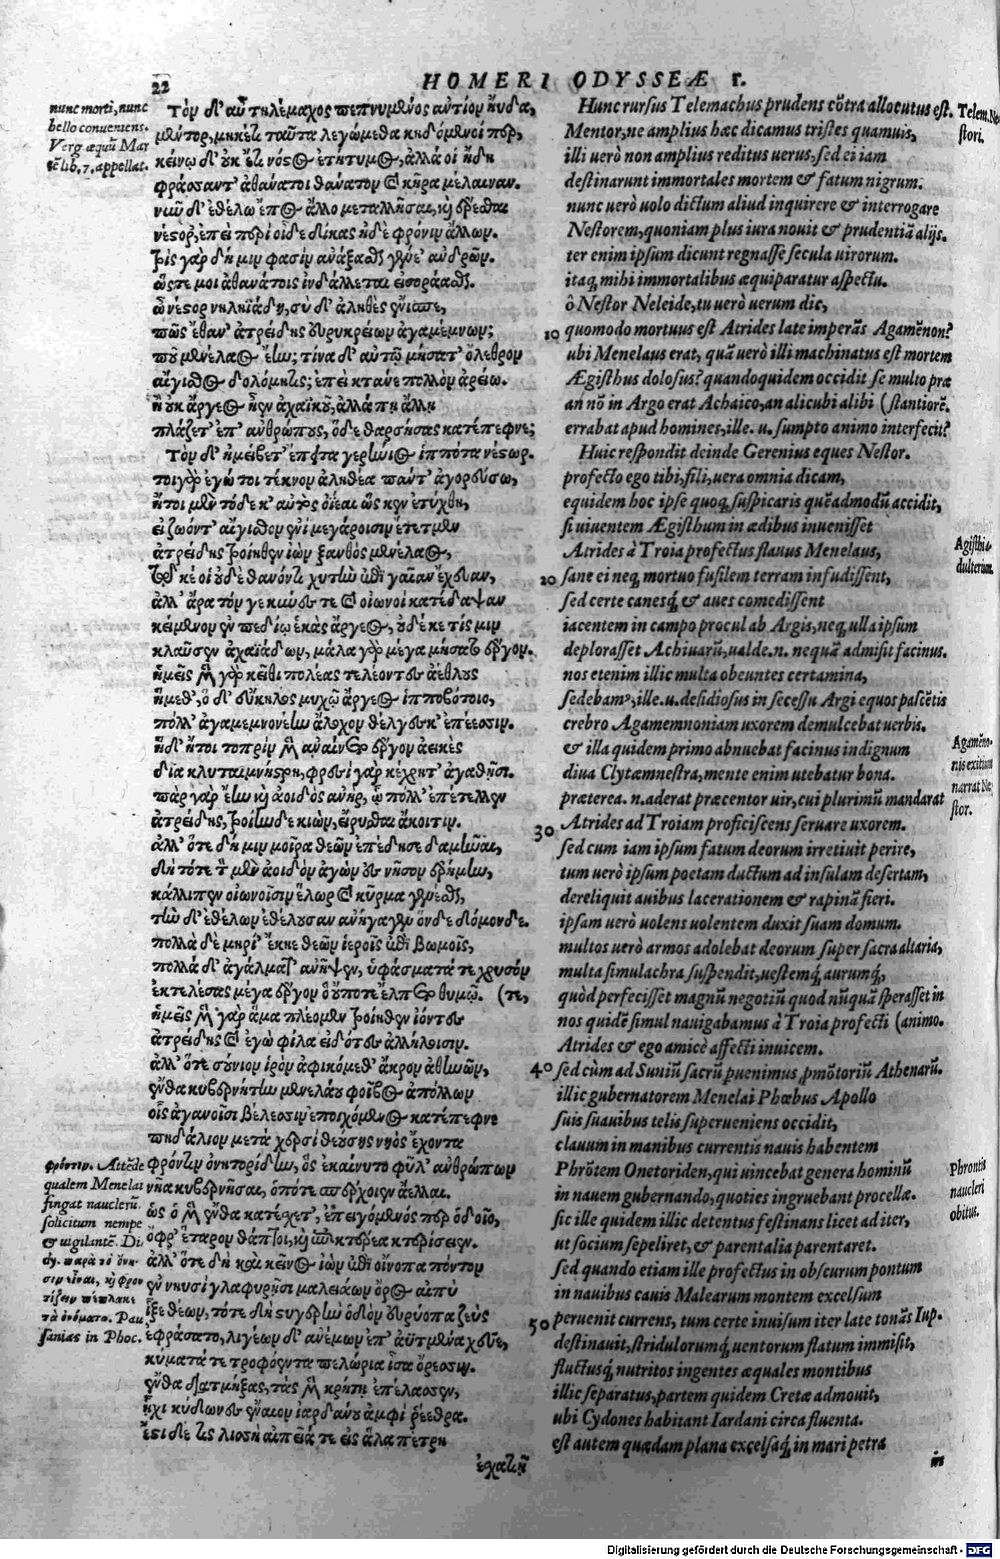 22
HOMERI ODYSSEÆ Γ.
nunc morti, nunc
bello conueniens.
Verg. æquũ Mar
tẽ lib. 7. appellat.
Τὸν δ' αὖ τηλέμαχος πεπνυμένος αὐτίον ηὔδα,
μέντορ, μηκέτι ταῦτα λεγώμεθα κηδόμενοί περ,
κείνῳ δ' οὐκ ἔτι νόστος ἐτήτυμος, ἀλλά οἱ ἤδη
φράσσαντ' ἀθάνατοι θάνατον καὶ κῆρα μέλαιναν.
νῦν δ' ἐθέλω ἔπος ἄλλο μεταλλῆσαι, καὶ ἐρέσθαι
νέστορ', ἐπεὶ περίοιδε δίκας ἠδὲ φρόνιν ἄλλων.
τρὶς γὰρ δή μιν φασιν ἀνάξασθαι γένε' ἀνδρῶν.
ὥστε μοι ἀθανάτοις ἰνδάλλεται εἰσοράασθαι.
ὦ νέστορ νηληϊάδη, σὺ δ' ἀληθὲς ἔνισπε,
πῶς ἔθαν' ἀτρείδης εὐρυκρείων ἀγαμέμνων;
ποῦ μενέλαος ἔην; τίνα δ' αὐτῷ μήσατ' ὄλεθρον
αἴγισθος δολόμητις; ἐπεὶ κτάνε πολλὸν ἀρείω.
ἢ οὐκ ἄργεος ἦεν ἀχαϊκοῦ, ἀλλά πη ἄλλῃ
πλάζετ' ἐπ' ἀνθρώπους, ὁ δὲ θαρσήσας κατέπεφνε;
Τὸν δ' ἠμείβετ' ἔπειτα γερήνιος ἱππότα νέστωρ.
τοιγὰρ ἐγώ τοι τέκνον ἀληθέα πάντ' ἀγορεύσω,
ἤτοι μὲν τόδε κ' αὐτὸς ὀΐεαι ὥς κεν ἐτύχθη,
εἰ ζωόντ' αἴγισθον ἐνὶ μεγάροισιν ἔτετμεν
ἀτρείδης τροίηθεν ἰὼν ξανθὸς μενέλαος,
τῷ κέ οἱ οὐδὲ θανόντι χυτὴν ἐπὶ γαῖαν ἔχευαν,
ἀλλ' ἄρα τόν γε κύνες τε καὶ οἰωνοὶ κατέδαψαν
κείμενον ἐν πεδίῳ ἑκὰς ἄργεος, οὐδέ κε τίς μιν
κλαῦσεν ἀχαιϊάδων, μάλα γὰρ μέγα μήσατο ἔργον.
ἡμεῖς μὲν γὰρ κεῖθι πολέας τελέοντες ἀέθλους
ἥμεθ', ὁ δ' εὔκηλος μυχῷ ἄργεος ἱπποβότοιο,
πόλλ' ἀγαμεμνονέην ἄλοχον θέλγεσκ' ἐπέεσσιν.
ἡ δ' ἤτοι τοπρὶν μὲν ἀναίνετο ἔργον ἀεικὲς
δῖα κλυταιμνήστρη, φρεσὶ γὰρ κέχρητ' ἀγαθῇσι.
πὰρ γὰρ ἔην καὶ ἀοιδὸς ἀνὴρ, ᾧ πόλλ' ἐπέτελλεν
ἀτρείδης, τροίηνδε κιὼν, εἴρυσθαι ἄκοιτιν.
ἀλλ' ὅτε δή μιν μοῖρα θεῶν ἐπέδησε δαμῆναι,
δὴ τότε τὸν μὲν ἀοιδὸν ἄγων ἐς νῆσον ἐρήμην,
κάλλιπεν οἰωνοῖσιν ἕλωρ καὶ κῦρμα γενέσθαι,
τὴν δ' ἐθέλων ἐθέλουσαν ἀνήγαγεν ὅνδε δόμονδε.
πολλὰ δὲ μηρί' ἔκηε θεῶν ἱεροῖς ἐπὶ βωμοῖς,
πολλὰ δ' ἀγάλματ' ἀνῆψεν, ὑφάσματά τε χρυσόν
ἐκτελέσας μέγα ἔργον ὃ οὔποτε ἔλπετο θυμῷ. (τε,
ἡμεῖς μὲν γὰρ ἅμα πλέομεν τροίηθεν ἰόντες
ἀτρείδης καὶ ἐγὼ φίλα εἰδότες ἀλλήλοισιν.
ἀλλ' ὅτε σούνιον ἱρὸν ἀφικόμεθ' ἄκρον ἀθηνῶν,
ἔνθα κυβερνήτην μενελάου φοῖβος ἀπόλλων
οἷς ἀγανοῖσι βέλεσσιν ἐποιχόμενος κατέπεφνε
πηδάλιον μετὰ χερσὶ θεούσης νηὸς ἔχοντα
φρόντιν ὀνητορίδην, ὃς ἐκαίνυτο φῦλ' ἀνθρώπων
νῆα κυβερνῆσαι, ὁπότε σπέρχοιεν ἄελλαι.
ὣς ὁ μὲν ἔνθα κατέσχετ', ἐπειγόμενός περ ὁδοῖο,
ὄφρ' ἕταρον θάπτοι, καὶ ἐπὶ κτέρεα κτερίσειεν.
ἀλλ' ὅτε δὴ καὶ κεῖνος ἰὼν ἐπὶ οἴνοπα πόντον
ἐν νηυσὶ γλαφυρῇσι μαλειάων ὄρος αἰπὺ
ἷξε θέων, τότε δὴ στυγερὴν ὁδὸν εὐρύοπα ζεὺς
ἐφράσατο, λιγέων δ' ἀνέμων ἐπ' ἀϋτμένα χεῦε,
κύματά τε τροφόεντα πελώρια ἶσα ὄρεσσιν.
ἔνθα διατμήξας, τὰς μὲν κρήτῃ ἐπέλασσεν,
ἧχι κύδωνες ἔναιον ἰαρδάνου ἀμφὶ ῥέεθρα.
ἔστι δέ τις λισσὴ αἰπεῖά τε εἰς ἅλα πέτρη
ἐσχατιῇ
φρόντιν. Attẽde
qualem Menelai
fingat nauclerũ.
solicitum nempe
& uigilantẽ. Di
παρὰ τὸ ὄνη-
τὰ ὀνόματα. Pau
sanias in Phoc.
Hunc rursus Telemachus prudens cõtra allocutus est.
Mentor, ne amplius hæc dicamus tristes quamuis,
illi uerò non amplius reditus uerus, sed ei iam
destinarunt immortales mortem & fatum nigrum.
nunc uerò uolo dictum aliud inquirere & interrogare
Nestorem, quoniam plus iura nouit & prudentiã alijs.
ter enim ipsum dicunt regnasse secula uirorum.
itaq; mihi immortalibus æquiparatur aspectu.
ô Nestor Neleide, tu uerò uerum dic,
10 quomodo mortuus est Atrides late imperãs Agamẽnon?
ubi Menelaus erat, quã uerò illi machinatus est mortem
Ægisthus dolosus? quandoquidem occidit se multo præ
an nõ in Argo erat Achaico, an alicubi alibi (stantiorẽ.
errabat apud homines, ille. u. sumpto animo interfecit?
Huic respondit deinde Gerenius eques Nestor.
profecto ego tibi, fili, uera omnia dicam,
equidem hoc ipse quoq; suspicaris quẽadmodũ accidit,
si uiuentem Ægisthum in ædibus inuenisset
Atrides à Troia profectus flauus Menelaus,
20 sane ei neq; mortuo fusilem terram infudissent,
sed certe canesq́; & aues comedissent
iacentem in campo procul ab Argis, neq; ulla ipsum
deplorasset Achiuarũ, ualde. n. nequã admisit facinus.
nos etenim illic multa obeuntes certamina,
sedebamꝰ, ille. u. desidiosus in secessu Argi equos pascẽtis
crebro Agamemnoniam uxorem demulcebat uerbis.
& illa quidem primo abnuebat facinus indignum
diua Clytæmnestra, mente enim utebatur bona.
præterea. n. aderat præcentor uir, cui plurimũ mandarat
30 Atrides ad Troiam proficiscens seruare uxorem.
sed cum iam ipsum fatum deorum irretiuit perire,
tum uerò ipsum poetam ductum ad insulam desertam,
dereliquit auibus lacerationem & rapinã fieri.
ipsam uerò uolens uolentem duxit suam domum.
multos uerò armos adolebat deorum super sacra altaria,
multa simulachra suspendit, uestemq́; aurumq́;,
quòd perfecisset magnũ negotiũ quod nũquã sperasset in
nos quidẽ simul nauigabamus à Troia profecti (animo.
Atrides & ego amicè affecti inuicem.
40 sed cùm ad Suniũ sacrũ puenimus pmõtoriũ Athenarũ.
illic gubernatorem Menelai Phœbus Apollo
suis suauibus telis superueniens occidit,
clauum in manibus currentis nauis habentem
Phrõtem Onetoriden, qui uincebat genera hominũ
in nauem gubernando, quoties ingruebant procellæ.
sic ille quidem illic detentus festinans licet ad iter,
ut socium sepeliret, & parentalia parentaret.
sed quando etiam ille profectus in obscurum pontum
in nauibus cauis Malearum montem excelsum
50 peruenit currens, tum certe inuisum iter late tonãs Iup.
destinauit, stridulorumq́; uentorum flatum immisit,
fluctusq́; nutritos ingentes æquales montibus
illic separatus, partem quidem Cretæ admouit,
ubi Cydones habitant Iardani circa fluenta.
est autem quædam plana excelsaq́; in mari petra
in
Telem. Ne
stori.
Ægisthi a-
dulterium.
Agamẽno-
nis exitium
narrat Ne
stor.
Phrontis
naucleri
obitus.
Digitalisierung gefördert durch die Deutsche Forschungsgemeinschaft - DFG